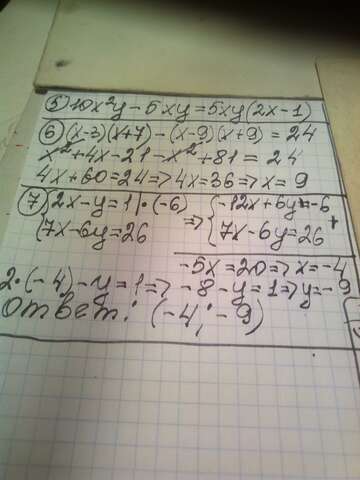 ⑤ 10x²y - 5xy = 5xy(2x-1)
⑥ (x-3)(x+7) - (x-9)(x+9) = 24
x² + 4x - 21 - x² + 81 = 24
4x + 60 = 24 => 4x = 36 => x = 9
⑦ {2x - y = 1 | · (-6) {-12x + 6y = -6
{7x - 6y = 26 => {7x - 6y = 26 +
-5x = 20 => x = -4
2·(-4) - y = 1 => -8 - y = 1 => y = -9
ответ: (-4; -9)